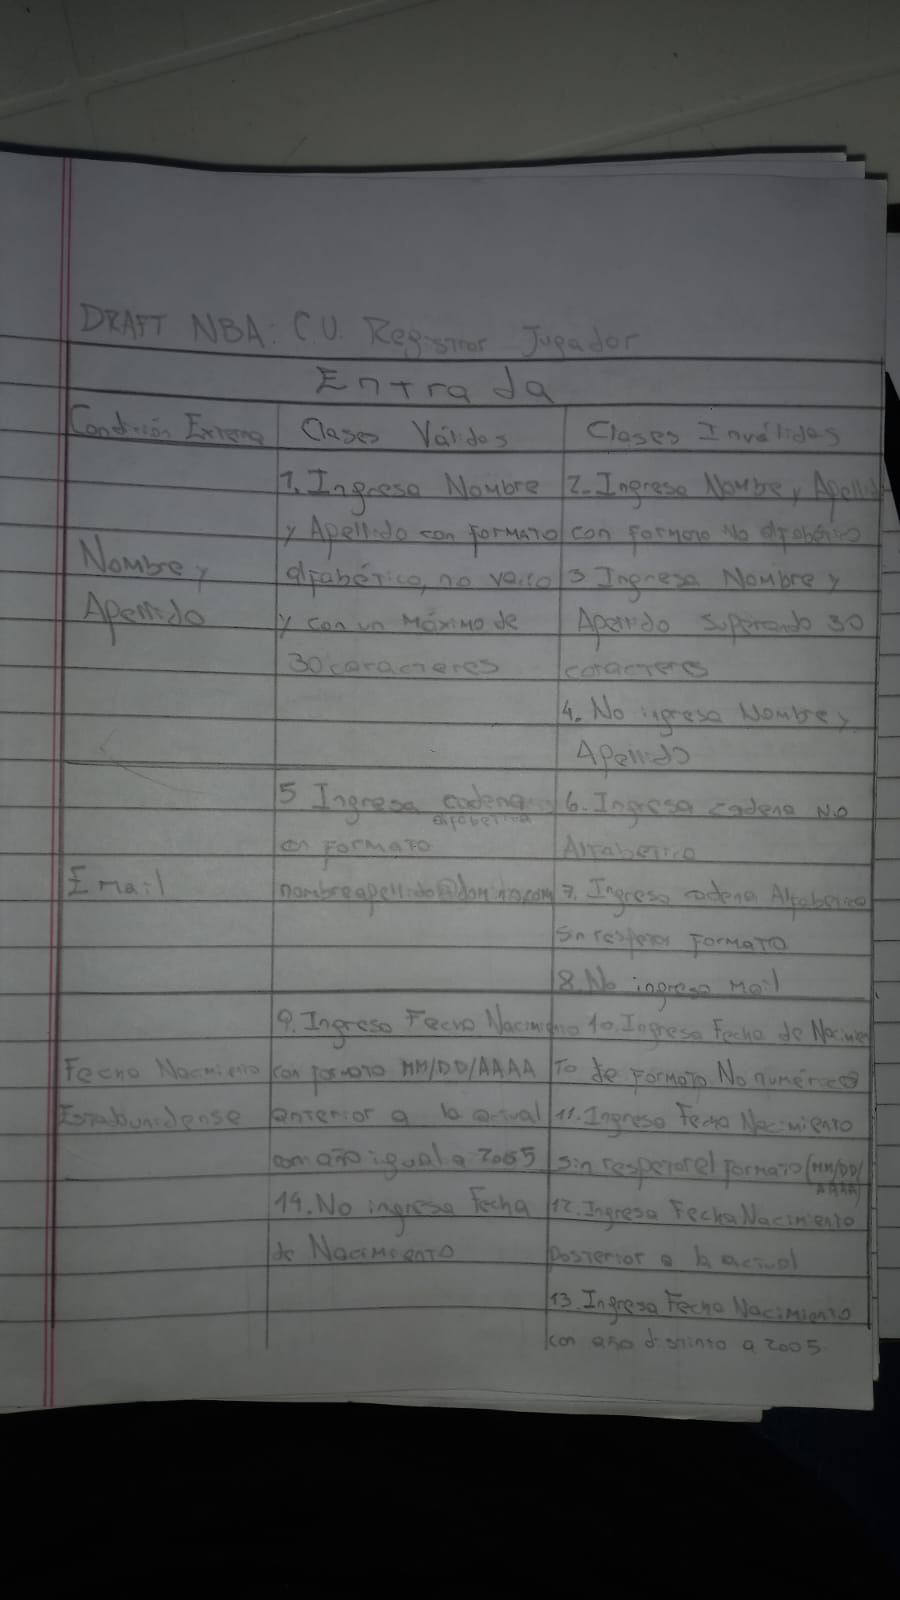 DRAFT NBA: C.U. Registrar Jugador
Entrada
Condición Externa
Clases Válidas
Clases Inválidas
Nombre y
Apellido
1. Ingresa Nombre
y Apellido con formato
alfabético, no vacío
y con un máximo de
30 caracteres
2. Ingresa Nombre y Apellid
con formato No alfabético
3 Ingresa Nombre y
Apellido superando 30
caracteres
4. No ingresa Nombre y
Apellido
Email
5 Ingresa cadena
alfabética
en formato
nombreapellido@dominio.com
6. Ingresa cadena no
Alfabético
7. Ingresa cadena Alfabético
sin respetar formato
8. No ingresa mail
Fecha Nacimiento
Estadounidense
9. Ingresa Fecha Nacimiento
con formato MM/DD/AAAA
anterior a la actual
con año igual a 2005
14. No ingresa Fecha
de Nacimiento
10. Ingresa Fecha de Nacimien
to de formato No numérico
11. Ingresa Fecha Nacimiento
sin respetar el formato (MM/DD/
AAAA)
12. Ingresa Fecha Nacimiento
posterior a la actual
13. Ingresa Fecha Nacimiento
con año distinto a 2005